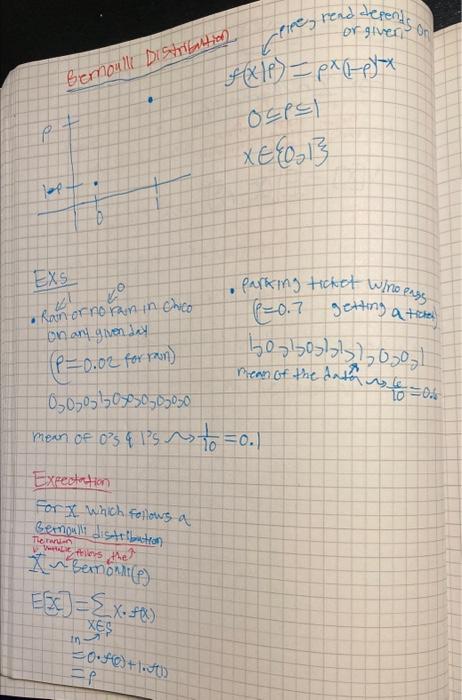 Bernoulli Distribution
pipe, read depends on
or given
f(x|p) = p^x(1-p)^1-x
0≤p≤1
x∈{0,1}
p
1-p
0
1
EXs
1 0
• Rain or no rain in Chico
on any given day
(p=0.02 for rain)
0,0,0,1,0,0,0,0,0,0
mean of 0's & 1's ⇝ 1/10 = 0.1
• Parking ticket w/no pass
(p=0.7 getting a ticket)
1,0,1,0,1,1,1,0,0,1
mean of the data ⇝ 6/10 = 0.6
Expectation
For X which follows a
Bernoulli distribution
The random
variable follows the
X ~ Bernoulli(p)
E[X] = Σ x·f(x)
x∈S
in
= 0·f(0)+1·f(1)
= p